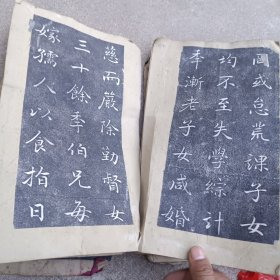 國或怠荒課子女
均不至失學綜計
奉漸老子女咸婚
慈而嚴除勤督女
三十餘年伯兄每
嫁孺人以食指日